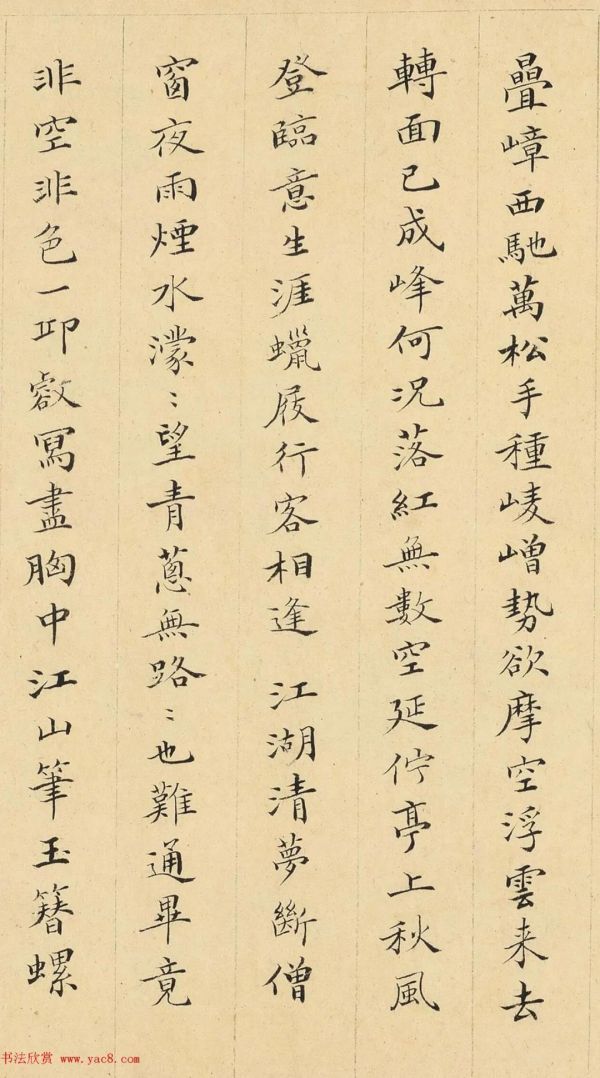 疊嶂西馳萬松手種崚嶒勢欲摩空浮雲来去
轉面已成峰何况落紅無數空延佇亭上秋風
登臨意生涯蠟屐行客相逢 江湖清夢斷僧
窗夜雨煙水濛〻望青蔥無路〻也難通畢竟
非空非色一卭㕡冩盡胸中江山筆玉簪螺
书法欣赏 www.yac8.com